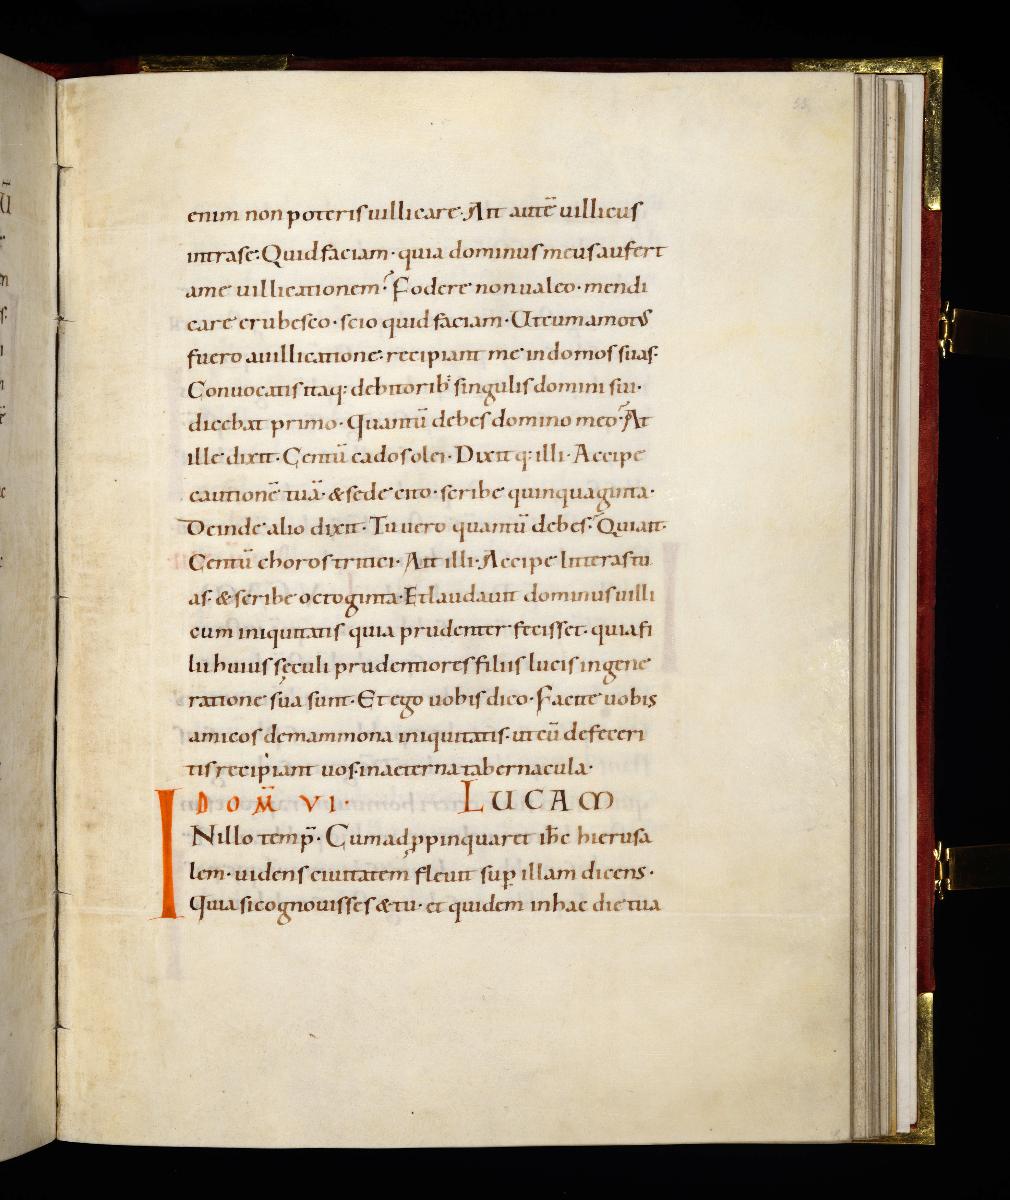 enim non poteris uillicare· Ait autē uillicus
intra se· Quid faciam· quia dominus meus aufert
a me uillicationem· Fodere non ualeo· mendi
care erubesco· scio quid faciam· Ut cum amotus
fuero a uillicatione· recipiant me in domos suas·
Conuocatis itaq; debitorib; singulis domini sui·
dicebat primo· Quantū debes domino meo· At
ille dixit· Centū cados olei· Dixitq; illi· Accipe
cautionē tuā· & sede cito· scribe quinquaginta·
Deinde alio dixit· Tu uero quantū debes· Qui ait·
Centū choros tritici· Ait illi· Accipe litteras tu
as· & scribe octoginta· Et laudauit dominus uilli
cum iniquitatis quia prudenter fecisset· quia fi
lii huius seculi prudentiores filiis lucis in gene
ratione sua sunt· Et ego uobis dico· Facite uobis
amicos de mammona iniquitatis· ut cū defeceri
tis recipiant uos in aeterna tabernacula·
DOM̄ VI· LUCAM
IN illo temp̄· Cum adppinquaret ihc hierusa
lem· uidens ciuitatem fleuit sup illam dicens·
Quia si cognouisses & tu· et quidem in hac die tua